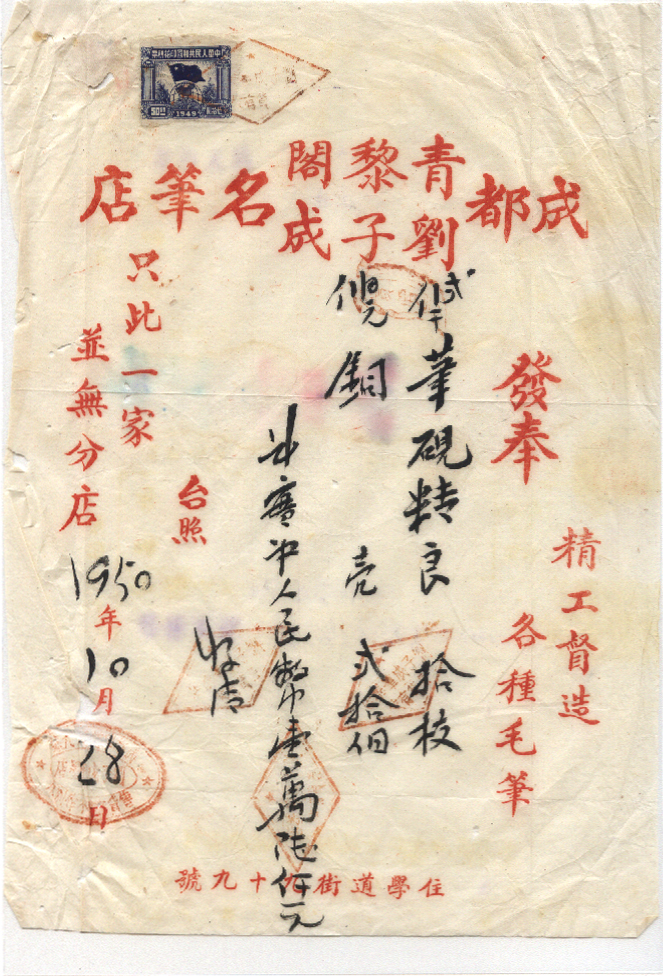 中華人民共和國印花稅票
1949
成都
青黎閣
劉子成
名筆店
精工督造
各種毛筆
發奉
筆硯精良 拾枝
銅 壳 弍拾個
人民幣壹萬陸仟元
收清
台照
只此一家
並無分店
1950年10月28日
住學道街九十九號